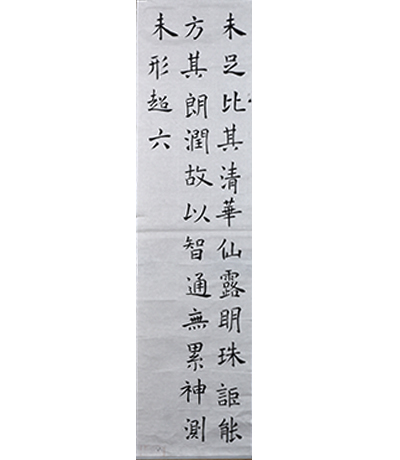 未足比其清華仙露明珠詎能
方其朗潤故以智通無累神測
未形超六